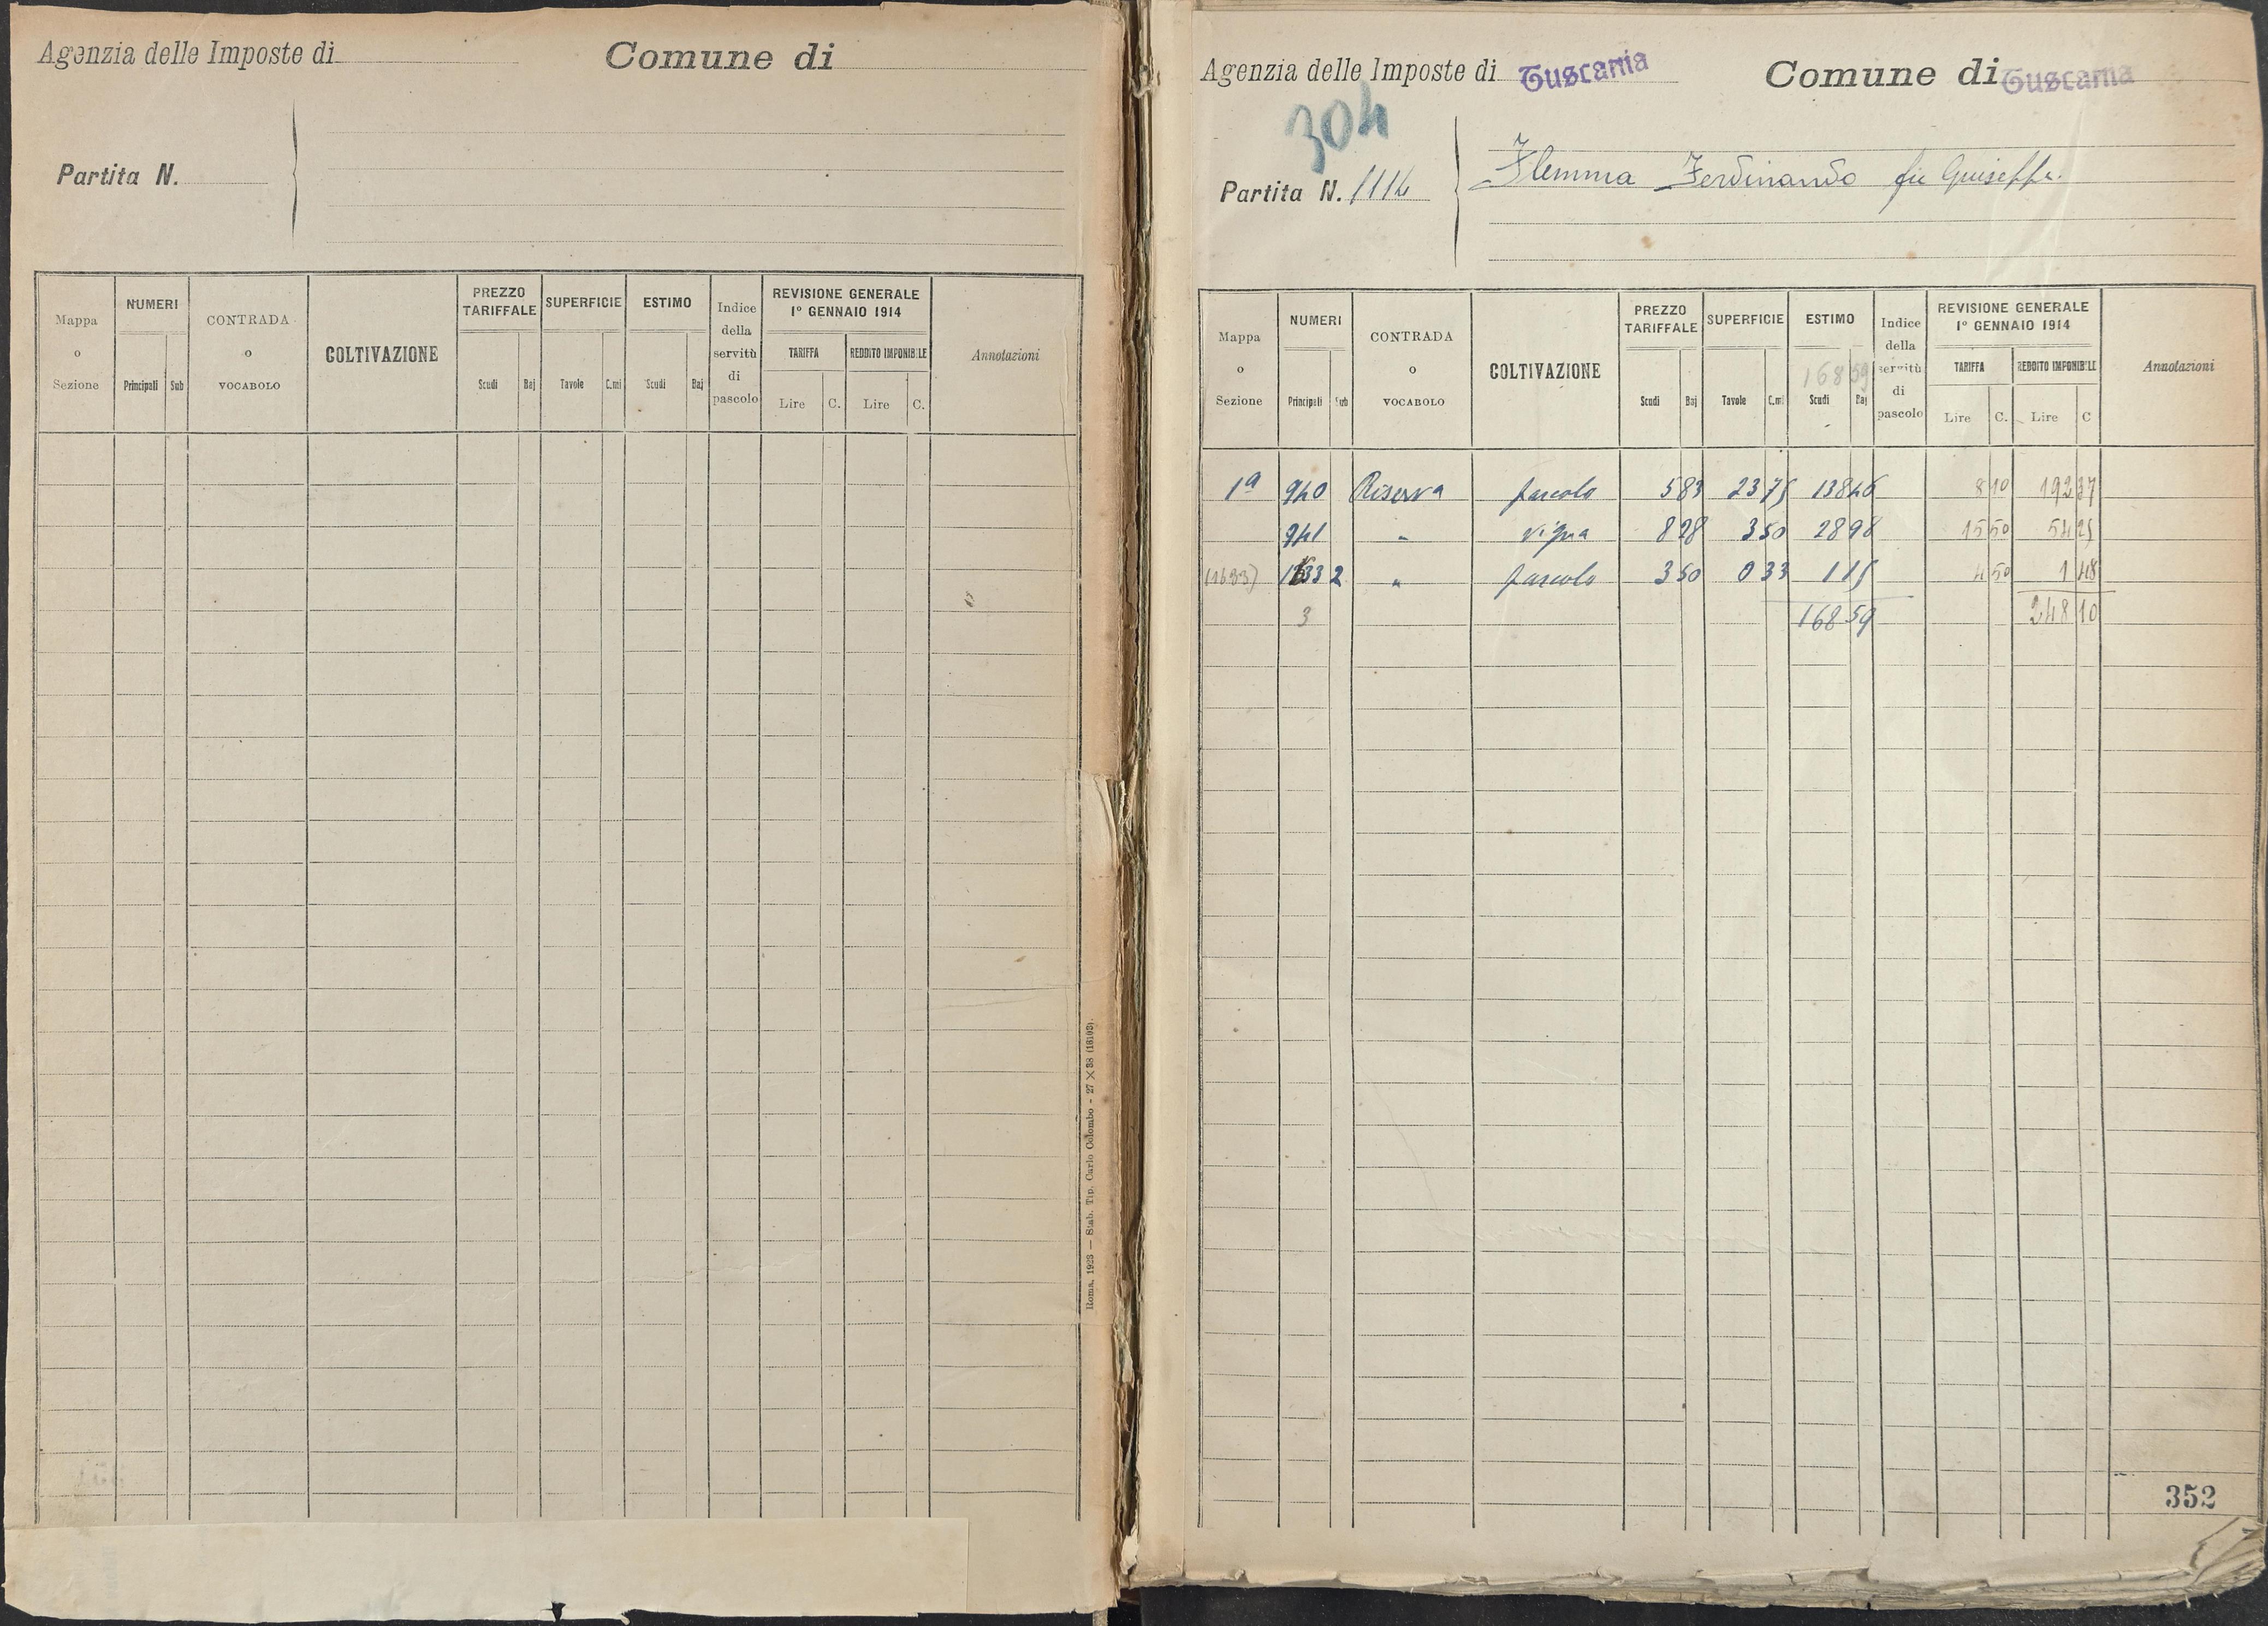 Agenzia delle Imposte di
Comune di
Partita N.
Mappa o Sezione
NUMERI
Principali Sub
CONTRADA o VOCABOLO
COLTIVAZIONE
PREZZO TARIFFALE
Scudi Baj
SUPERFICIE
Tavole C.mi
ESTIMO
Scudi Baj
Indice della servitù di pascolo
REVISIONE GENERALE
1° GENNAIO 1914
TARIFFA REDDITO IMPONIBILE
Lire C. Lire C.
Annotazioni
Roma, 1923 — Stab. Tip. Carlo Colombo - 27 × 38 (16103).
Agenzia delle Imposte di Tuscania
Comune di Tuscania
304
Partita N. 1114
Flemma Ferdinando fu Giuseppe.
Mappa o Sezione
NUMERI
Principali Sub
CONTRADA o VOCABOLO
COLTIVAZIONE
PREZZO TARIFFALE
Scudi Baj
SUPERFICIE
Tavole C.mi
ESTIMO
168 59
Scudi Baj
Indice della servitù di pascolo
REVISIONE GENERALE
1° GENNAIO 1914
TARIFFA REDDITO IMPONIBILE
Lire C. Lire C
Annotazioni
1ª 940 Riserva pascolo 5 83 23 75 138 46 8 10 192 37
941 " vigna 8 28 3 50 28 98 15 50 54 25
2 " pascolo 3 50 0 33 1 15 4 50 1 48
3 168 59 248 10
352